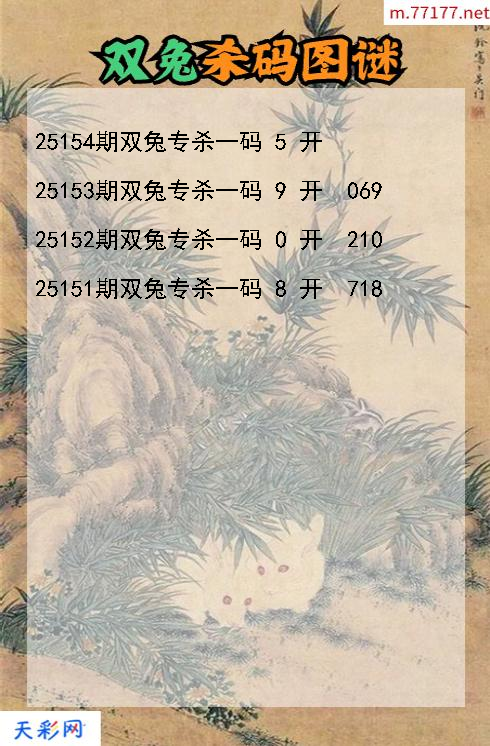 m.77177.net
双兔杀码图谜
25154期双兔专杀一码 5 开
25153期双兔专杀一码 9 开 069
25152期双兔专杀一码 0 开 210
25151期双兔专杀一码 8 开 718
天彩网